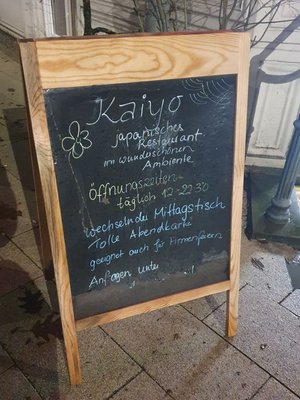 Kaiyo
japanisches
Restaurant
im wunderschönen
Ambiente
Öffnungszeiten
täglich 12-22:30
wechselnder Mittagstisch
Tolle Abendkarte
geeignet auch für Firmenfeiern
Anfragen unter